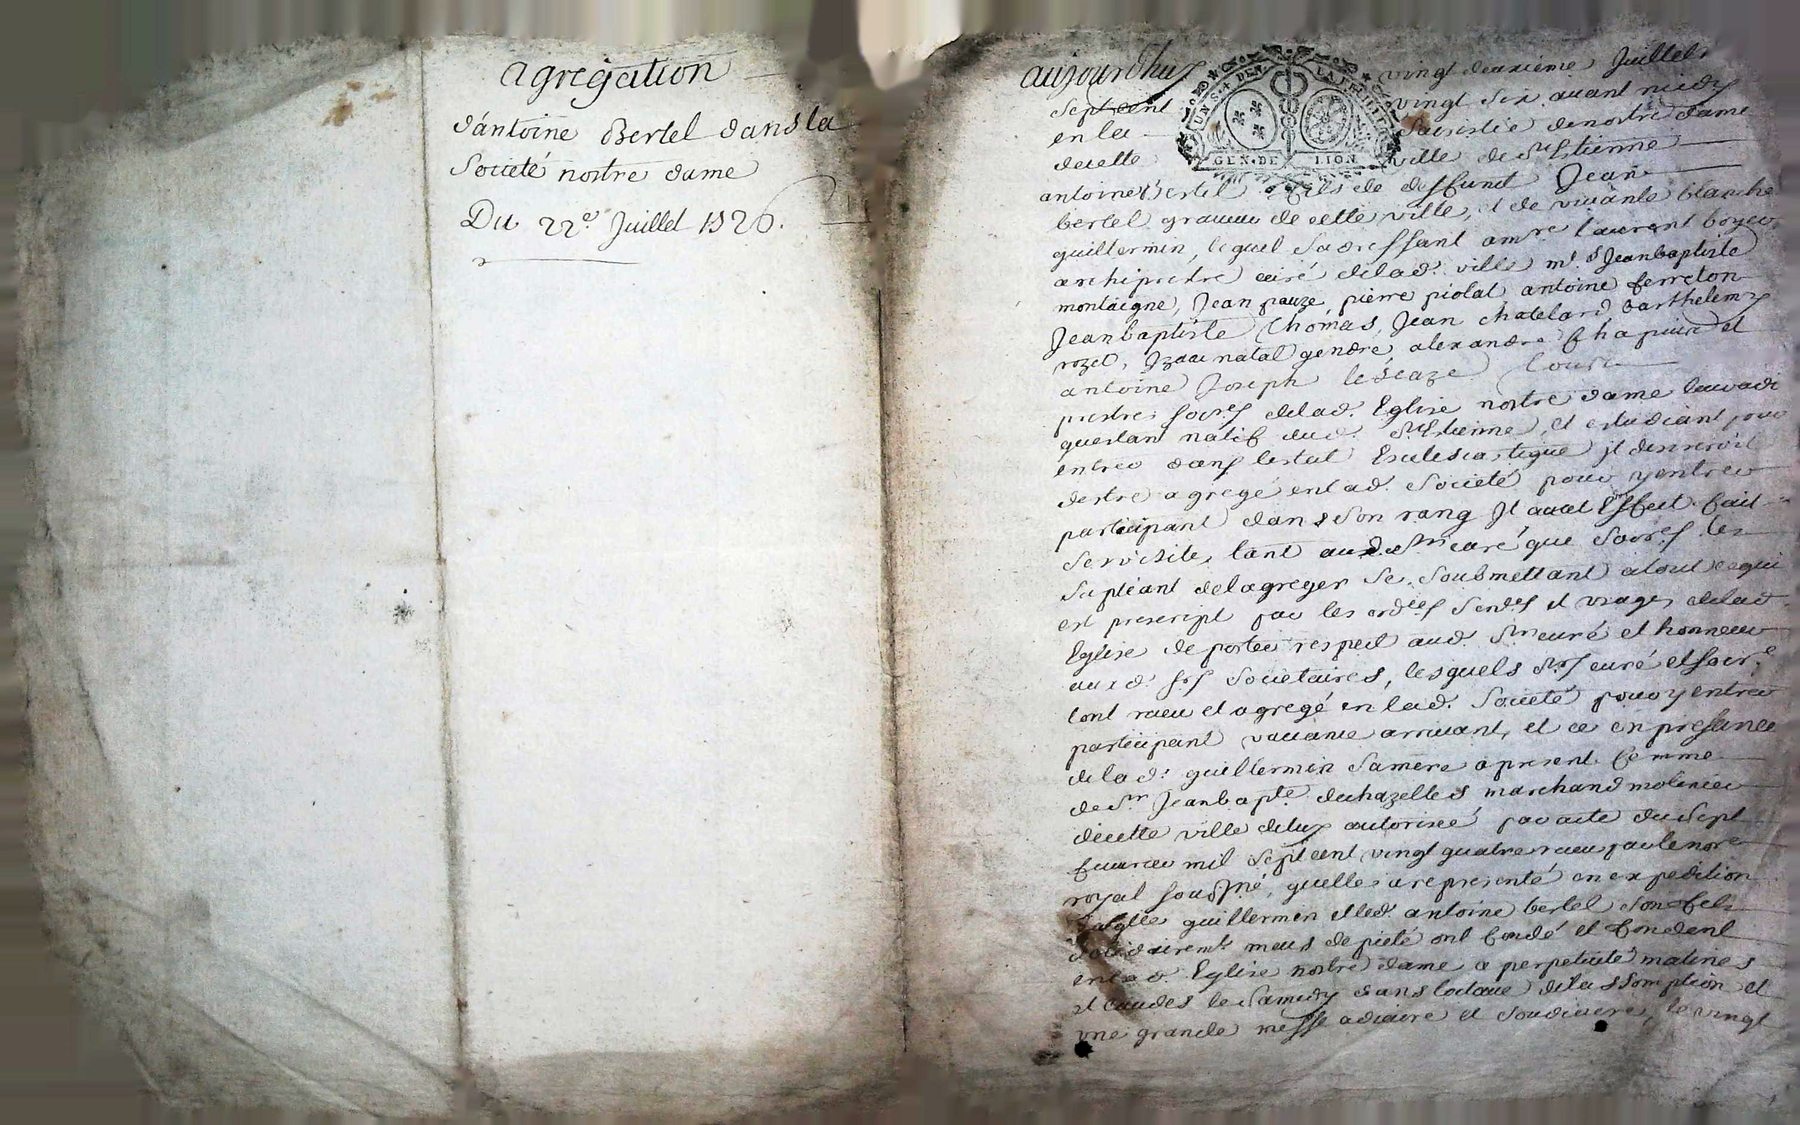 agregation
d'antoine Bertel dans la
Societé nostre dame
Du 22e. Juillet 1726.
aujourdhuy vingt deuxieme Juillet
sept cent vingt six auant midy
en la Sacristie de nostre dame
de cette ville de St. Estienne
GEN. DE LION
antoine Bertel fils de deffunt Jean
bertel graueur de cette ville, et de viuante blanche
guillermin, lequel sadressant a mre laurent boyer
archiprestre curé de lad. ville mrs Jean baptiste
montaigne, Jean pauze, pierre piolat antoine ferreton
Jean baptiste Thomas, Jean chatelard, barthelemy
rozet, Izaac natal gendre, alexandre chapuis et
antoine Joseph
prestres de lad. Eglise nostre dame leur a dit
questant natif dud. St. Estienne, et estudiant pour
entrer dans lestat Ecclesiastique il desireroit
destre agregé en lad. Societé pour y entrer
participant dans son rang Il a a cet Effect fait
se visite, tant aud. Sr. curé que les
supliant de lagreger se soubmettant a tout ce qui
est prescript par les et vsages de lad.
Eglise de porter respect aud. Sr. curé et honneur
aux d. Srs Societaires, lesquels Srs curé et
lont receu et agregé en lad. Societé pour y entrer
participant vacance arriuant, et ce en presence
de lad. guillermin sa mere a present femme
de Sr Jean bapte. duchazelles marchand molinier
de cette ville de luy autorisée par acte du sept
mil sept cent vingt quatre receu par le nore
royal soussigné, quelle a representé en expedition
guillermin et led. antoine bertel son fils
meus de pieté ont fondé et fondent
en lad. Eglise nostre dame a perpetuité matines
et laudes le Samedy dans loctaue de lassomption et
vne grande messe a diacre et soudiacre, le vingt